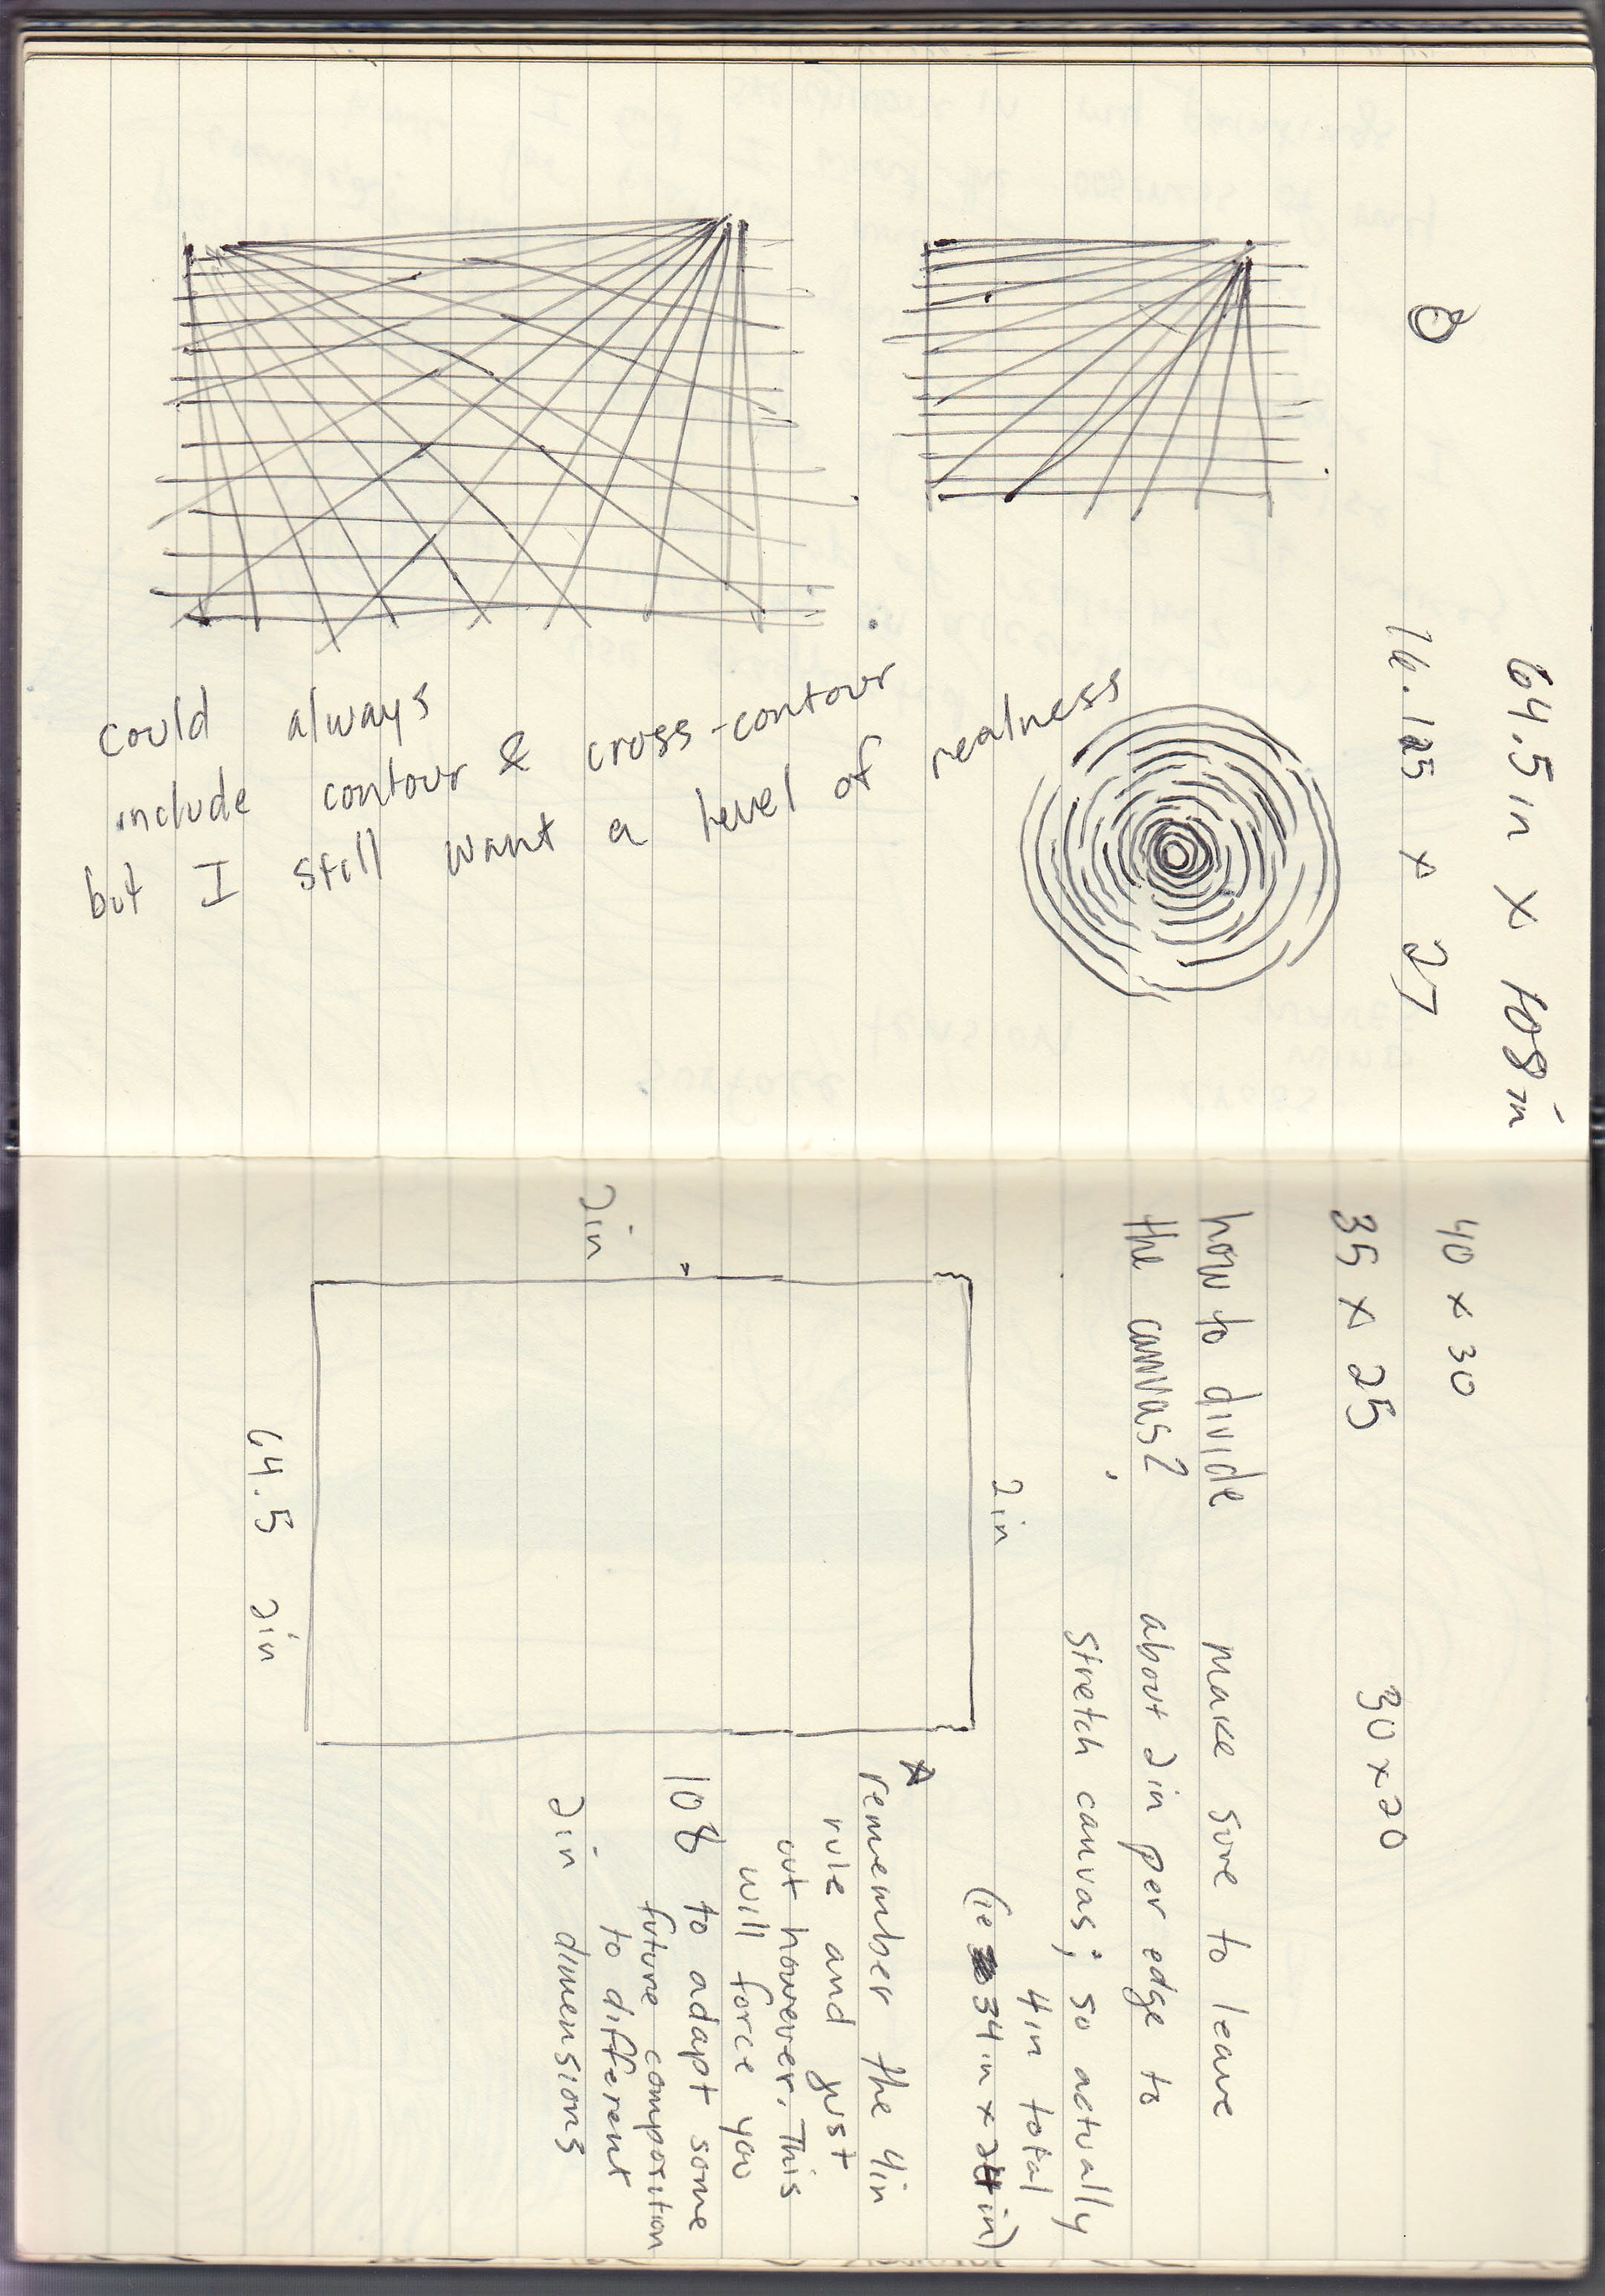 64.5 in x 108 in
16.125 x 27
could always
include contour & cross-contour
but I still want a level of realness
40 x 30
35 x 25
30 x 20
how to divide
the canvas?
make sure to leave
about 2in per edge to
stretch canvas; so actually
4in total
(ie 34in x 24in)
2in
2in
64.5 2in
remember the 4in
rule and just
cut however. This
will force you
108 to adapt some
future composition
to different
2in dimensions